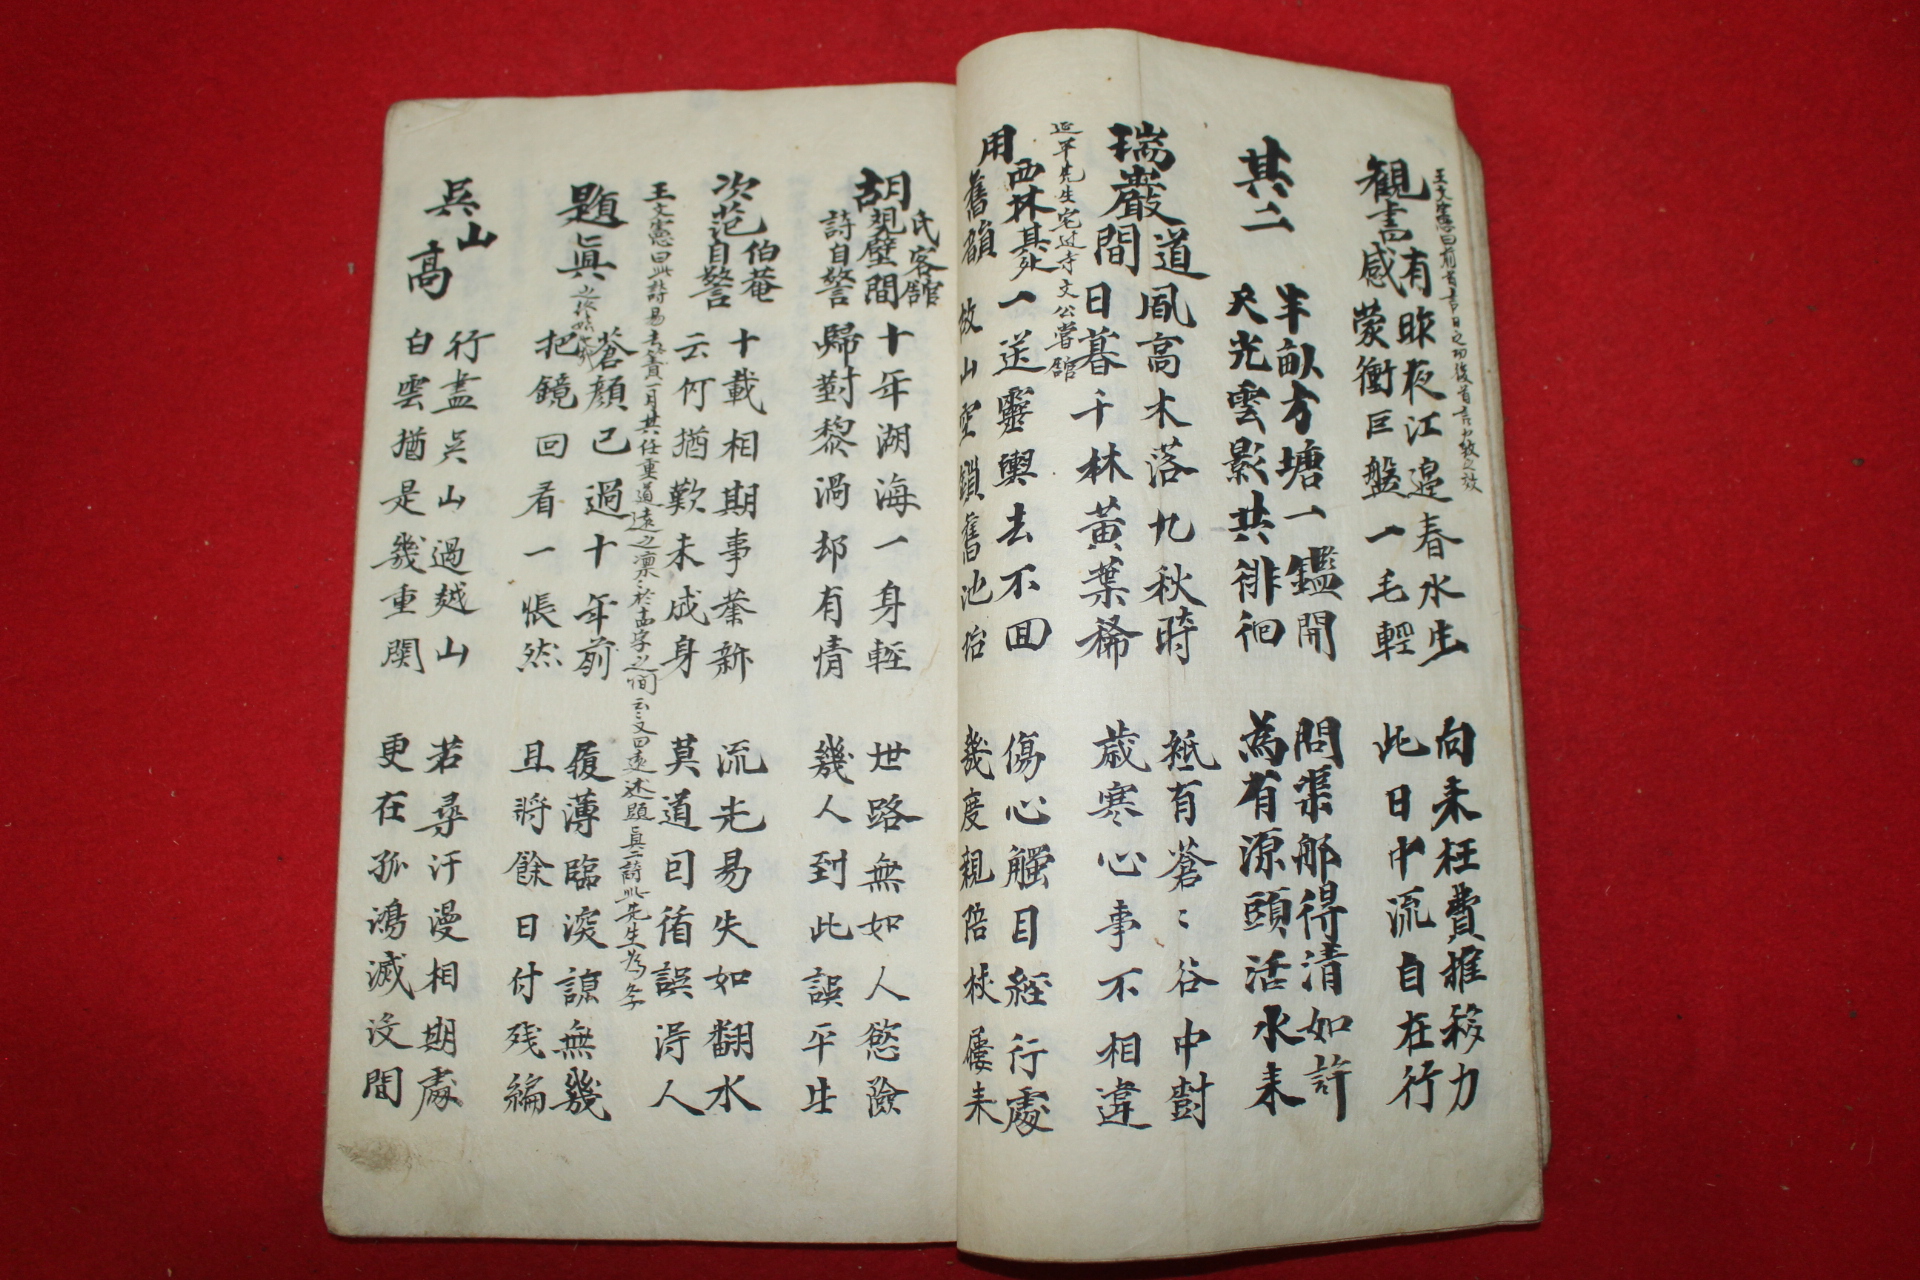 觀書有感
王文憲曰前首言日之功後首言
昨夜江邊春水生 向來枉費推移力
蒙衝巨盤一毛輕 此日中流自在行
其二
半畝方塘一鑑開 問渠那得清如許
天光雲影共徘徊 為有源頭活水來
瑞巖道間
風高木落九秋時 秪有蒼〻谷中對
日暮千林黃葉稀 歲寒心事不相違
延平先生宅过寺文公嘗舘其处
用西林舊韻
一送靈輿去不回 傷心觸目經行處
故山空鎖舊池 幾度親陪杖屨來
胡氏客舘觀壁間詩自警
十年湖海一身輕 世路無如人慾險
歸對黎渦却有情 幾人到此誤平生
次范伯菴自警
十載相期事業新 流光易失如翻水
云何猶歎未成身 莫道因循誤得人
王文憲曰此詩易去簀一月其任重道遠之凛〻於 字之间云〻又曰遠述題眞二詩此先生為
題眞
蒼顏已過十年前 履薄臨深諒無幾
把鏡回看一悵然 且將餘日付殘編
吳山高
行盡吳山過越山 若尋汗漫相期處
白雲猶是幾重関 更在孤鴻滅沒間